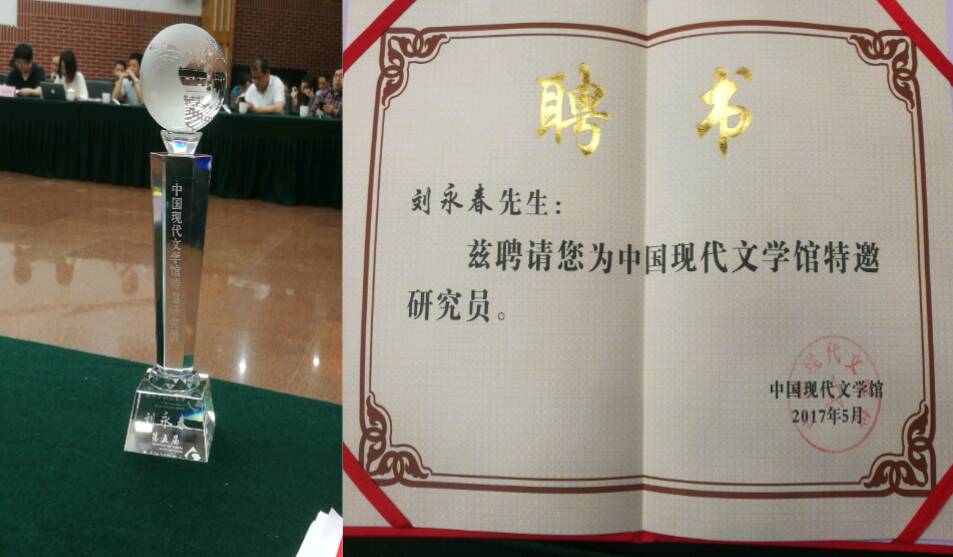 中国现代文学馆特邀研究员
刘永春
第五届
聘书
刘永春先生：
兹聘请您为中国现代文学馆特邀
研究员。
中国现代文学馆
2017年5月